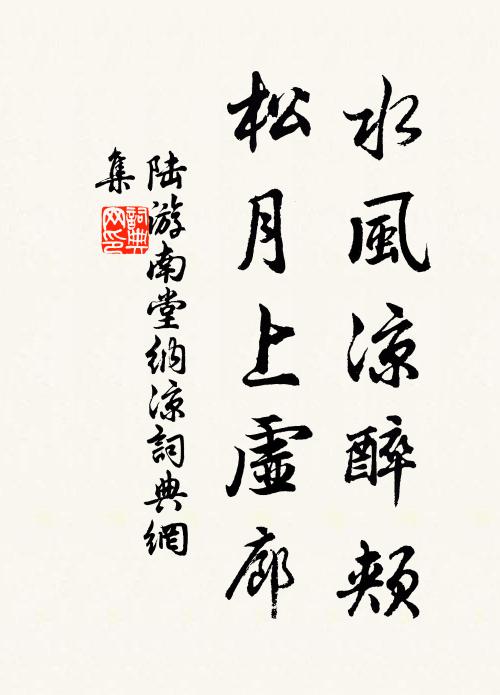 水風涼醉頰
松月上虛廊
陸游南堂納涼詞典網
集
詞典
网印